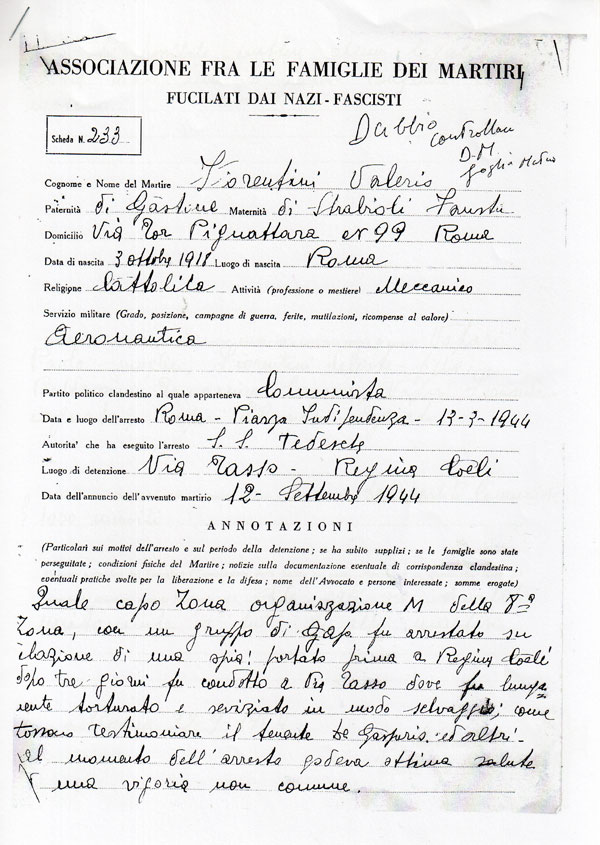 ASSOCIAZIONE FRA LE FAMIGLIE DEI MARTIRI
FUCILATI DAI NAZI-FASCISTI
Dubbio
controllare
D.M.
foglio
Scheda N. 233
Cognome e Nome del Martire Fiorentini Valerio
Paternità di Gastone Maternità di Fausta
Domicilio Via Tor Pignattara N° 99 Roma
Data di nascita 3 ottobre 1918 Luogo di nascita Roma
Religione Cattolica Attività (professione o mestiere) Meccanico
Servizio militare (Grado, posizione, campagne di guerra, ferite, mutilazioni, ricompense al valore)
Aeronautica
Partito politico clandestino al quale apparteneva Comunista
Data e luogo dell'arresto Roma - Piazza Indipendenza - 13-3-1944
Autorita' che ha eseguito l'arresto S.S. Tedesche
Luogo di detenzione Via Tasso - Regina Coeli
Data dell'annuncio dell'avvenuto martirio 12 - Settembre 1944
ANNOTAZIONI
(Particolari sui motivi dell'arresto e sul periodo della detenzione; se ha subito supplizi; se le famiglie sono state
perseguitate; condizioni fisiche del Martire; notizie sulla documentazione eventuale di corrispondenza clandestina;
eventuali pratiche svolte per la liberazione e la difesa; nome dell'Avvocato e persone interessate; somme erogate)
Quale capo Zona organizzazione M della 8ª
Zona, con un gruppo di Gap fu arrestato su
delazione di una spia! portato prima a Regina Coeli
dopo tre giorni fu condotto a Via Tasso dove fu lunga
mente torturato e seviziato in modo selvaggio; come
possono testimoniare il tenente De Gasperis ed altri -
Al momento dell'arresto godeva ottima salute
una vigoria non comune.